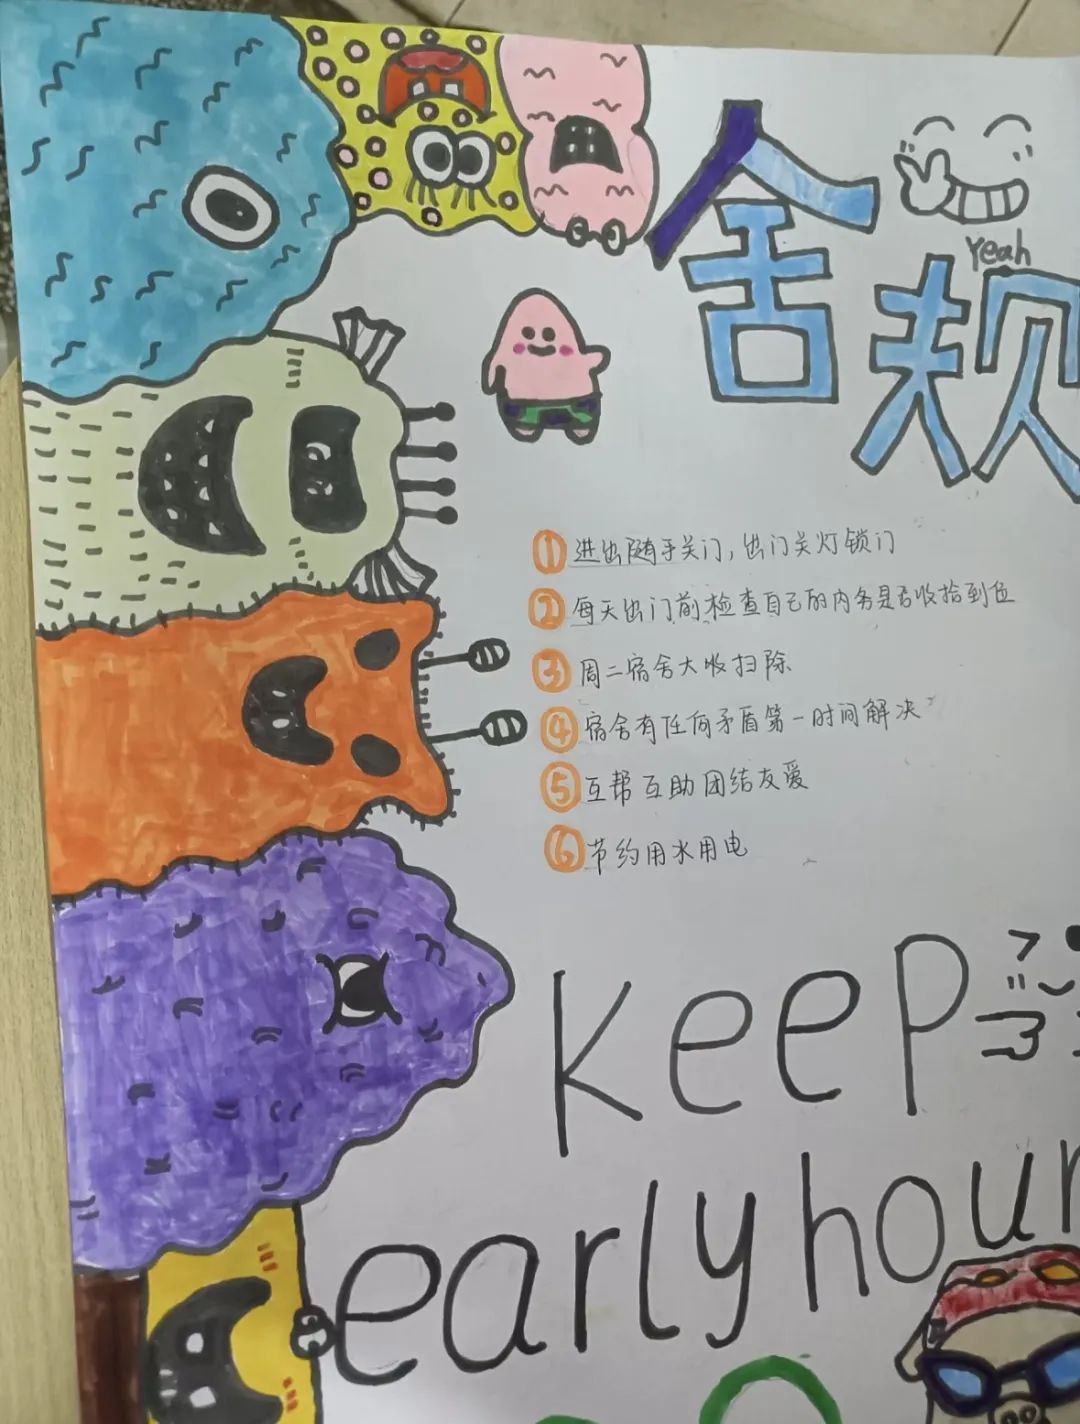 舍规
Yeah
①进出随手关门，出门关灯锁门
②每天出门前检查自己的内务是否收拾到位
③周二宿舍大收扫除
④宿舍有任何矛盾第一时间解决
⑤互帮互助团结友爱
⑥节约用水用电
keep
early hour